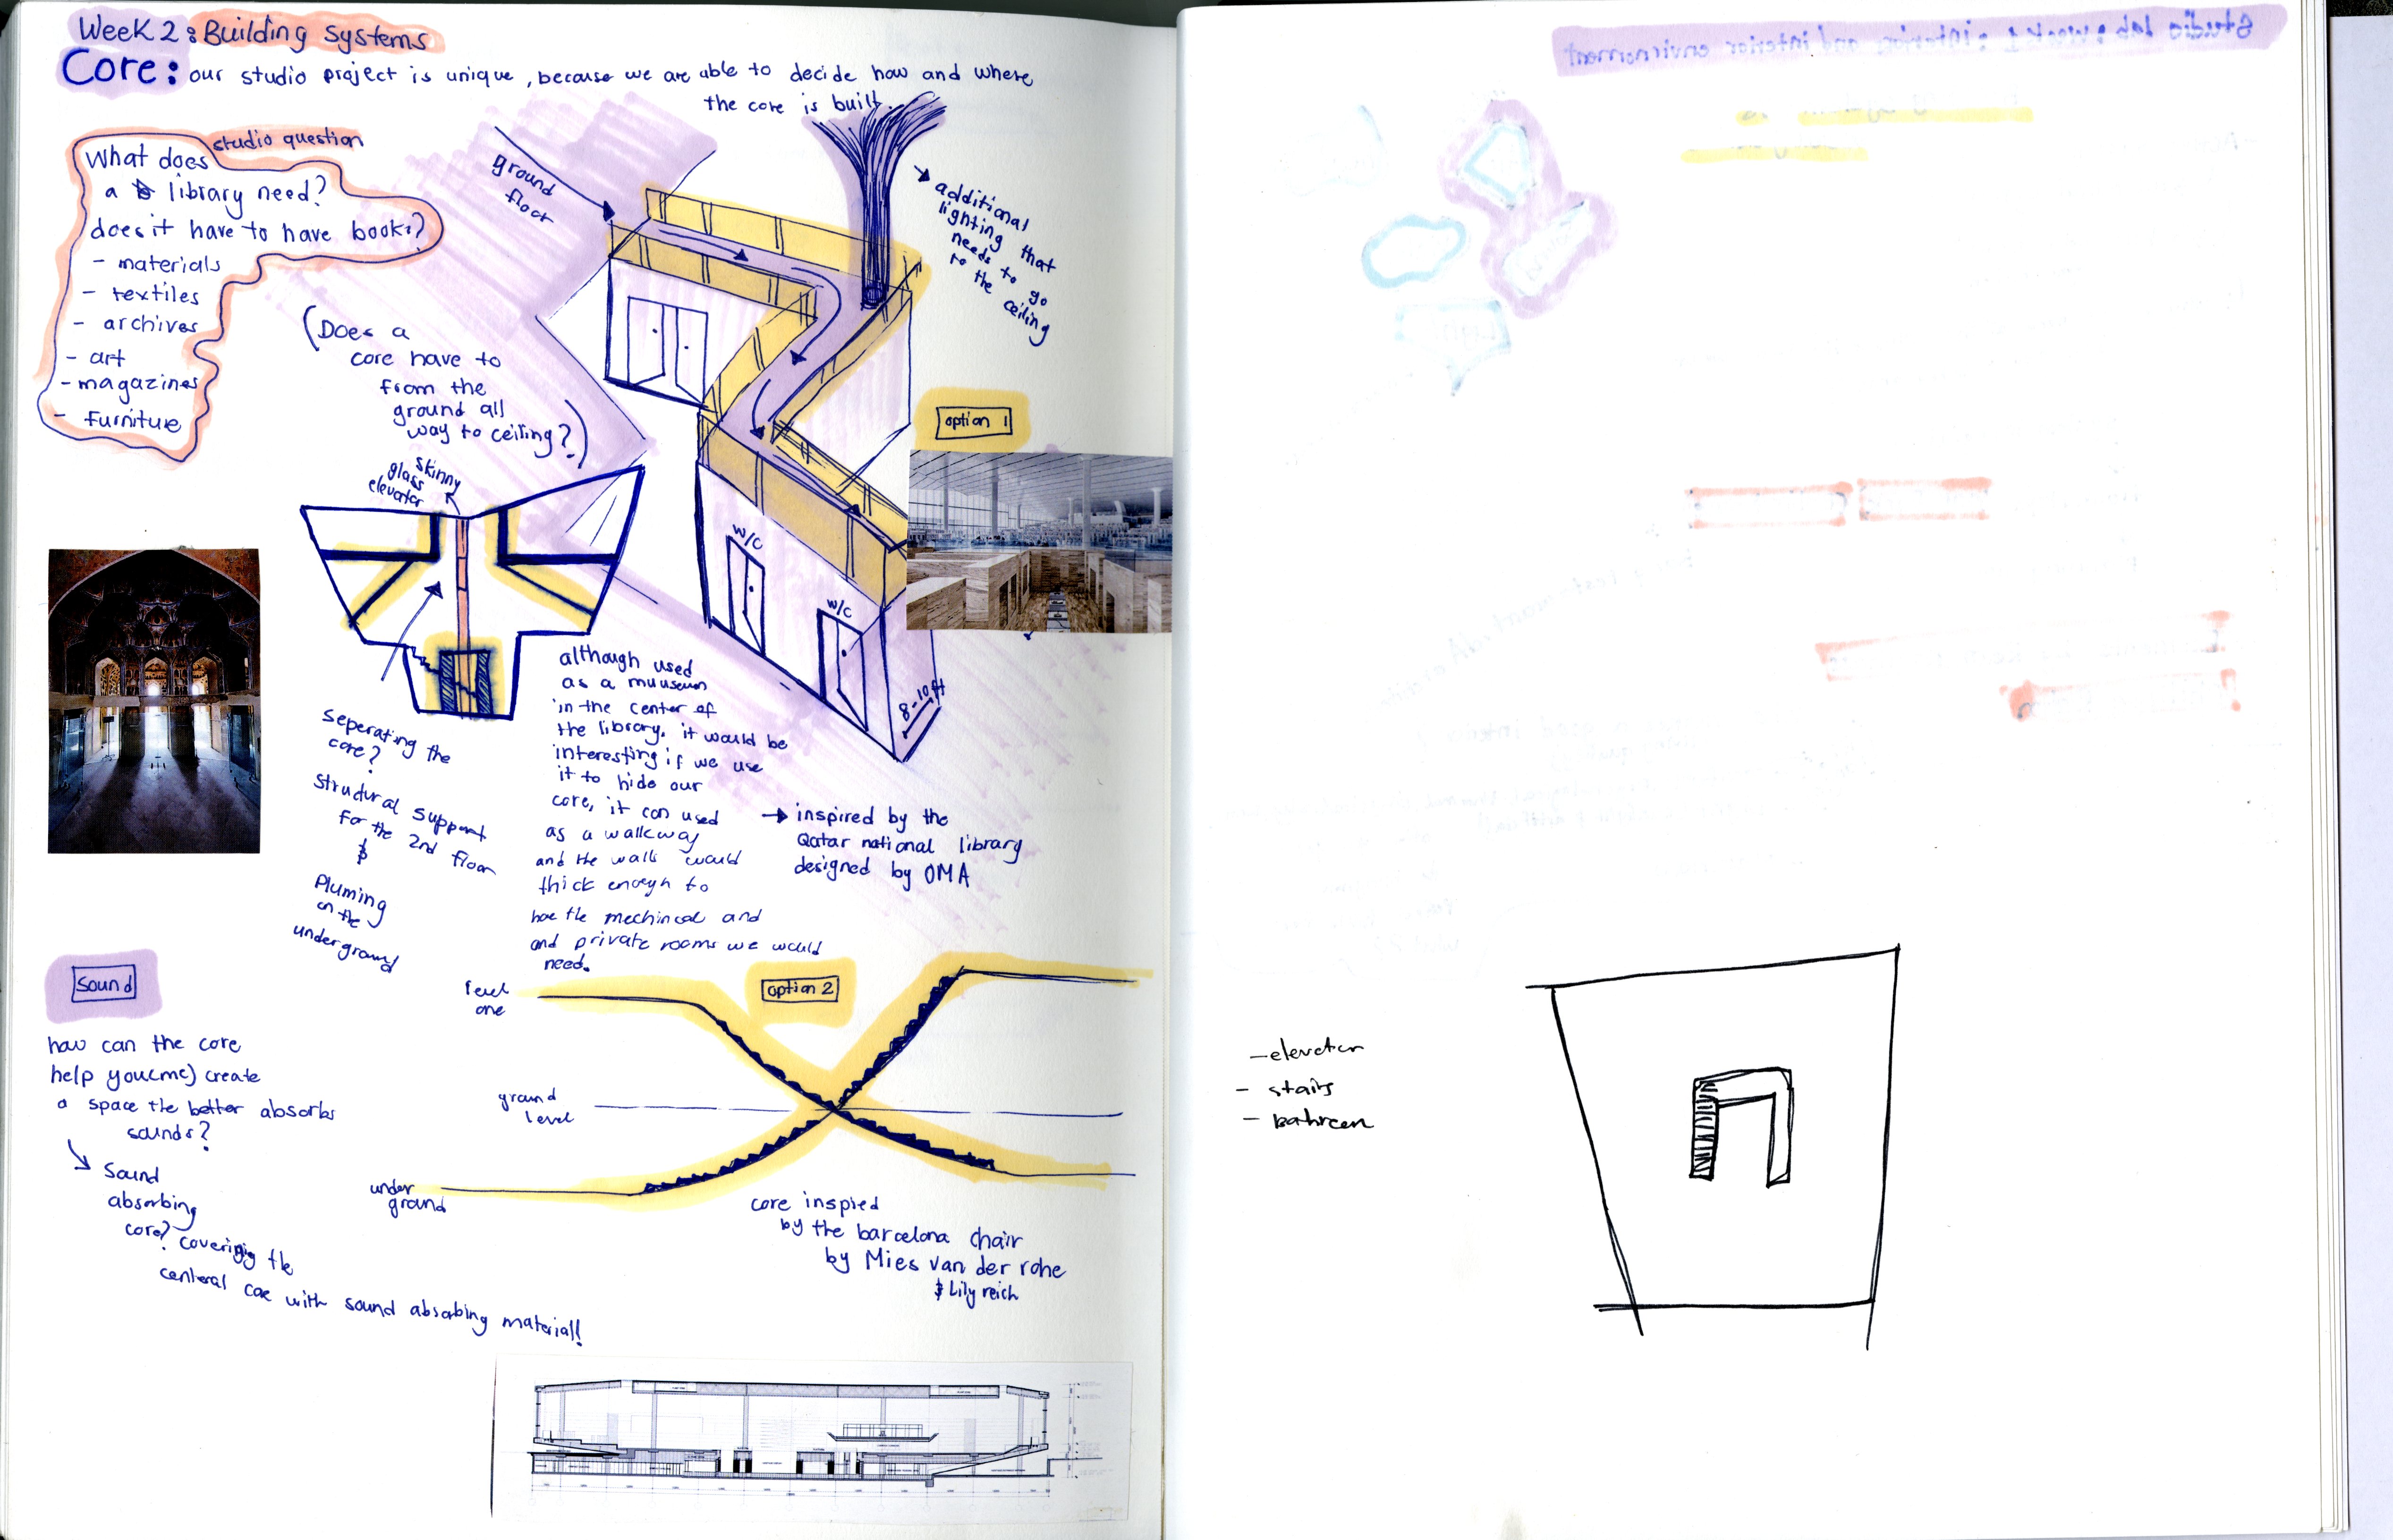 Week 2: Building systems
Core: our studio project is unique, because we are able to decide how and where
the core is built.
studio question
What does
a library need?
does it have to have books?
- materials
- textiles
- archives
- art
- magazines
- furniture
ground
floor
additional
lighting that
needs to go
to the ceiling
(Does a
core have to
from the
ground all
way to ceiling?)
option 1
skinny
glass
elevator
w/c
w/c
8-10 ft
seperating the
core?
structural support
for the 2nd floor
&
Pluming
on the
underground
although used
as a muuseum
in the center of
the library, it would be
interesting if we use
it to hide our
core, it can used
as a walkway
and the walls would
thick enough to
hae the mechincal and
and private rooms we would
need.
inspired by the
Qatar national library
designed by OMA
sound
how can the core
help you(me) create
a space the better absorbs
sounds?
sound
absorbing
core? covering the
centeral core with sound absorbing material!
option 2
level
one
ground
level
under
ground
core inspied
by the barcelona chair
by Mies van der rohe
& Lily reich
- elevator
- stairs
- bathroom
Studio lab: week 1: interior and interior environment